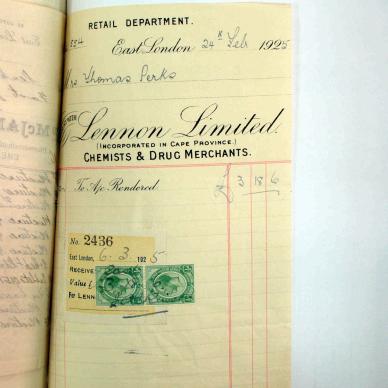 RETAIL DEPARTMENT.
East London 24th Feb 1925
Mrs Thomas Perks
Lennon Limited.
(INCORPORATED IN CAPE PROVINCE.)
CHEMISTS & DRUG MERCHANTS.
To A/c Rendered £ 3 18 6
No. 2436
East London, 6. 3. 1925
RECEIVE
Value £
For LENN